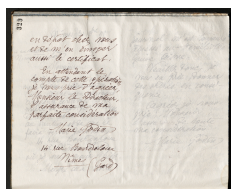 323
en dépôt chez vous
et de m'en envoyer
aussi le certificat.
En attendant le
compte de cette
je vous prie d'agréer
Monsieur le Directeur
l'assurance de ma
parfaite considération
Marie
14 rue
Nîmes (Gard)